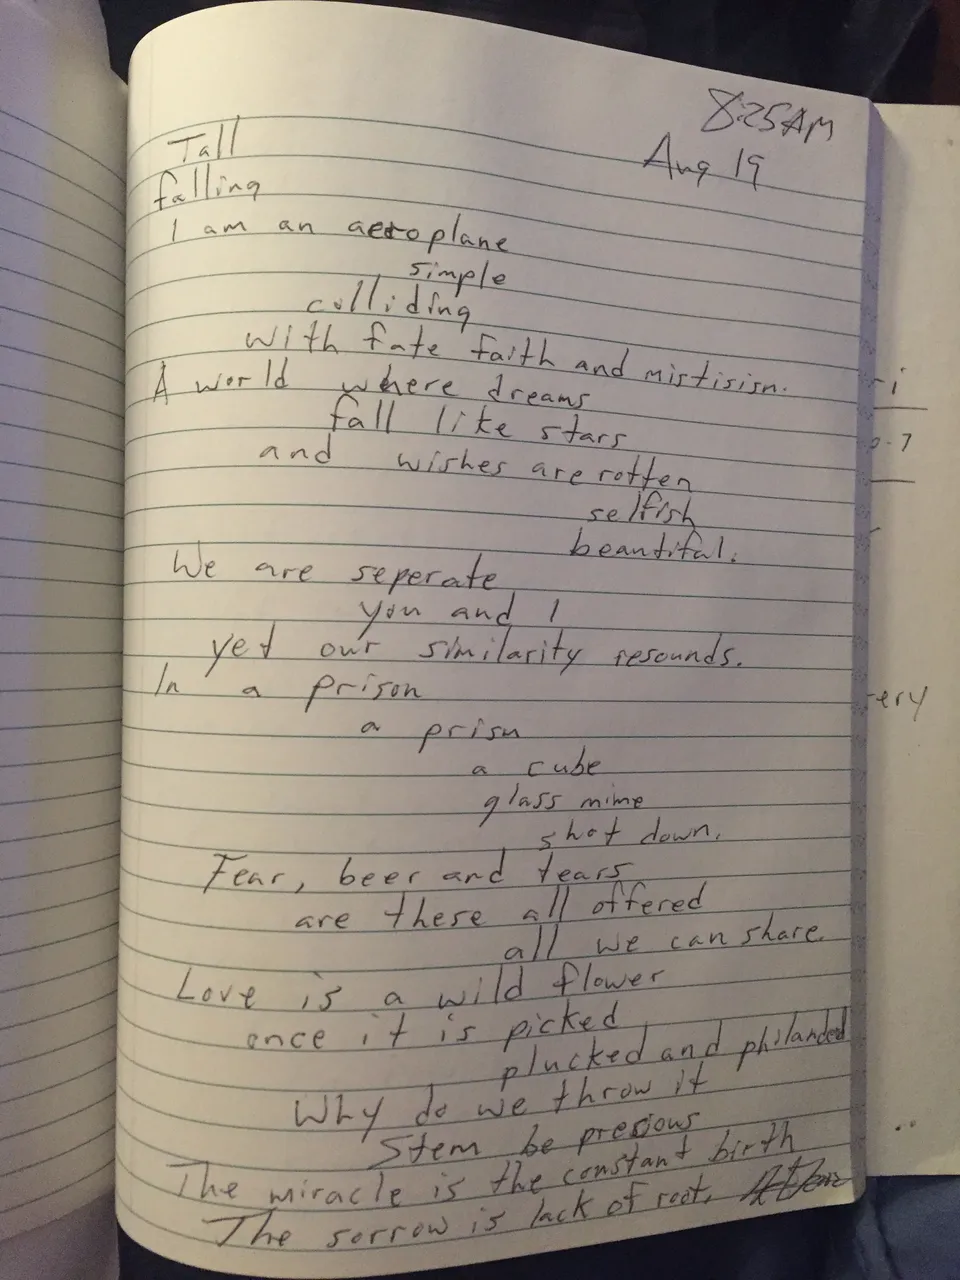 8:25AM
Aug 19
Tall
falling
I am an aeroplane
simple
colliding
with fate faith and mistisism.
A world where dreams
fall like stars
and wishes are rotten
selfish
beautiful.
We are seperate
you and I
yet our similarity resounds.
In a prison
a prism
a cube
glass mime
shot down.
Fear, beer and tears
are these all offered
all we can share.
Love is a wild flower
once it is picked
plucked and philanded
Why do we throw it
Stem be precious
The miracle is the constant birth
The sorrow is lack of root.
-i
-7
ery